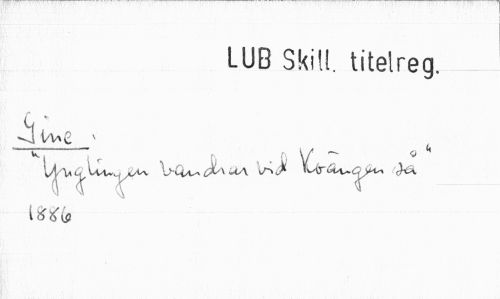 LUB Skill. titelreg.
Gine.
"Ynglingen vandrar vid Kvängen så"
1886